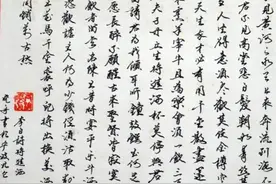 見黄河之水天上来奔流到海不
君不見高堂明鏡悲白髮朝如青絲
人生得意須盡歡莫使金樽
天生我才必有用千金散盡還
羊宰牛且為樂會須一飲三
夫子丹丘生將進酒杯莫停與君
傾耳聽鐘鼓饌玉不足
願長醉不願醒古来聖賢皆寂寞
飲者留其名陳王昔時宴平樂斗酒
恣歡謔主人何為言少錢徑須沽取對
花馬千金裘呼兒將出換美
同銷萬古愁
李白詩將進酒